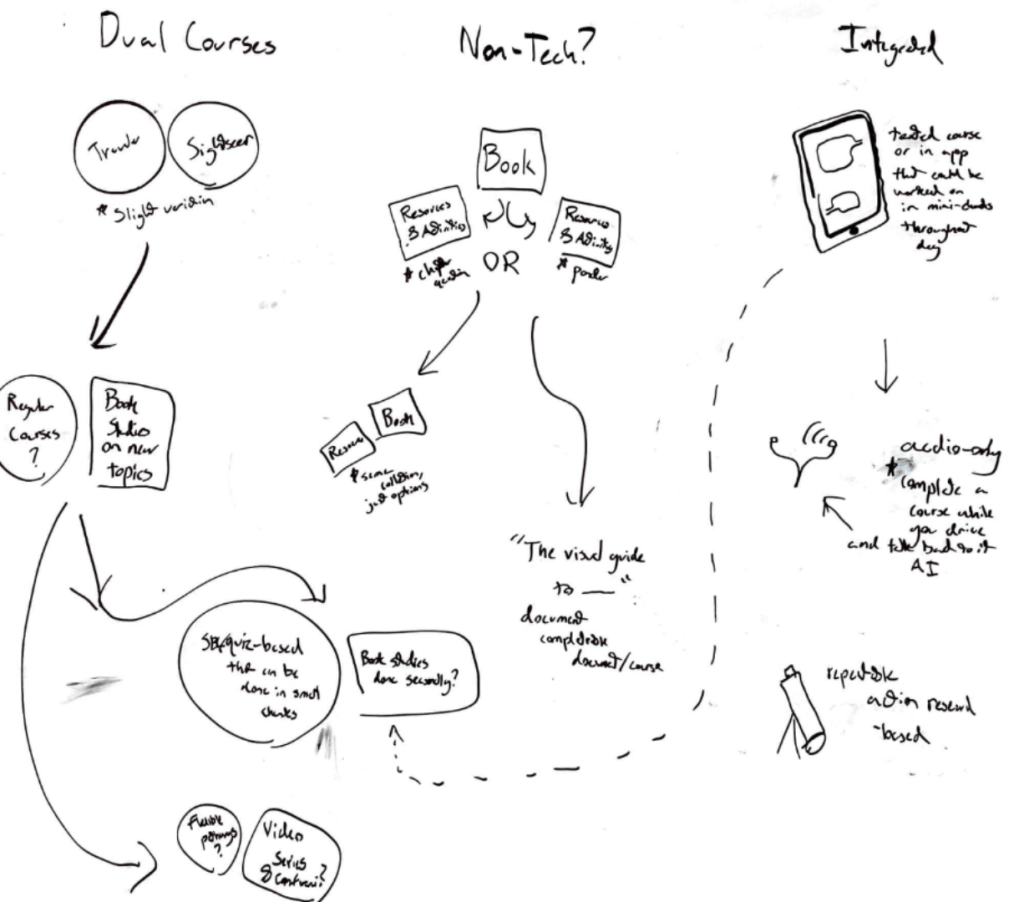 Dual Courses
Non-Tech?
Integrated
Sightseer
* Slight
Book
Resources
& Activities
OR
Resources
& Activities
texted course
or in app
that could be
worked on
in mini-chunks
throughout
day
Regular
Courses
?
Book
Studies
on new
topics
Book
* same
just options
audio-only
* complete a
course while
you drive
and talk back to it
AI
"The visual guide
to ___"
document
completable
document/course
quiz-based
that can be
done in small
chunks
Book studies
done secondly?
repeatable
action research
-based
Flexible
?
Video
Series
&